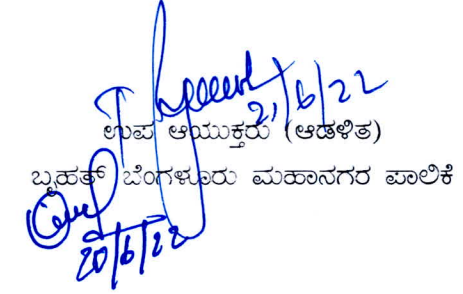 21/6/22
ಉಪ ಆಯುಕ್ತರು (ಆಡಳಿತ)
ಬೃಹತ್ ಬೆಂಗಳೂರು ಮಹಾನಗರ ಪಾಲಿಕೆ
20/6/22